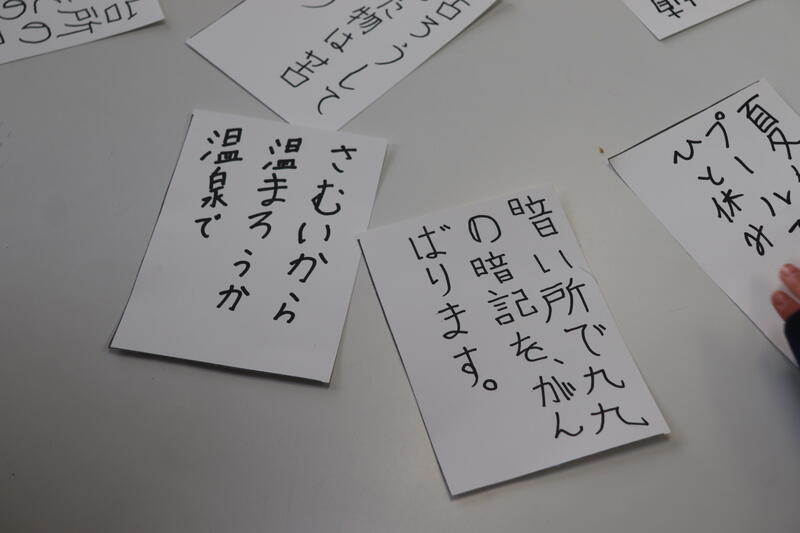 台所
ろうして
物は苦
さむいから
温まろうか
温泉で
暗い所で九九
の暗記を、がん
ばります。
夏
プール
ひと休み